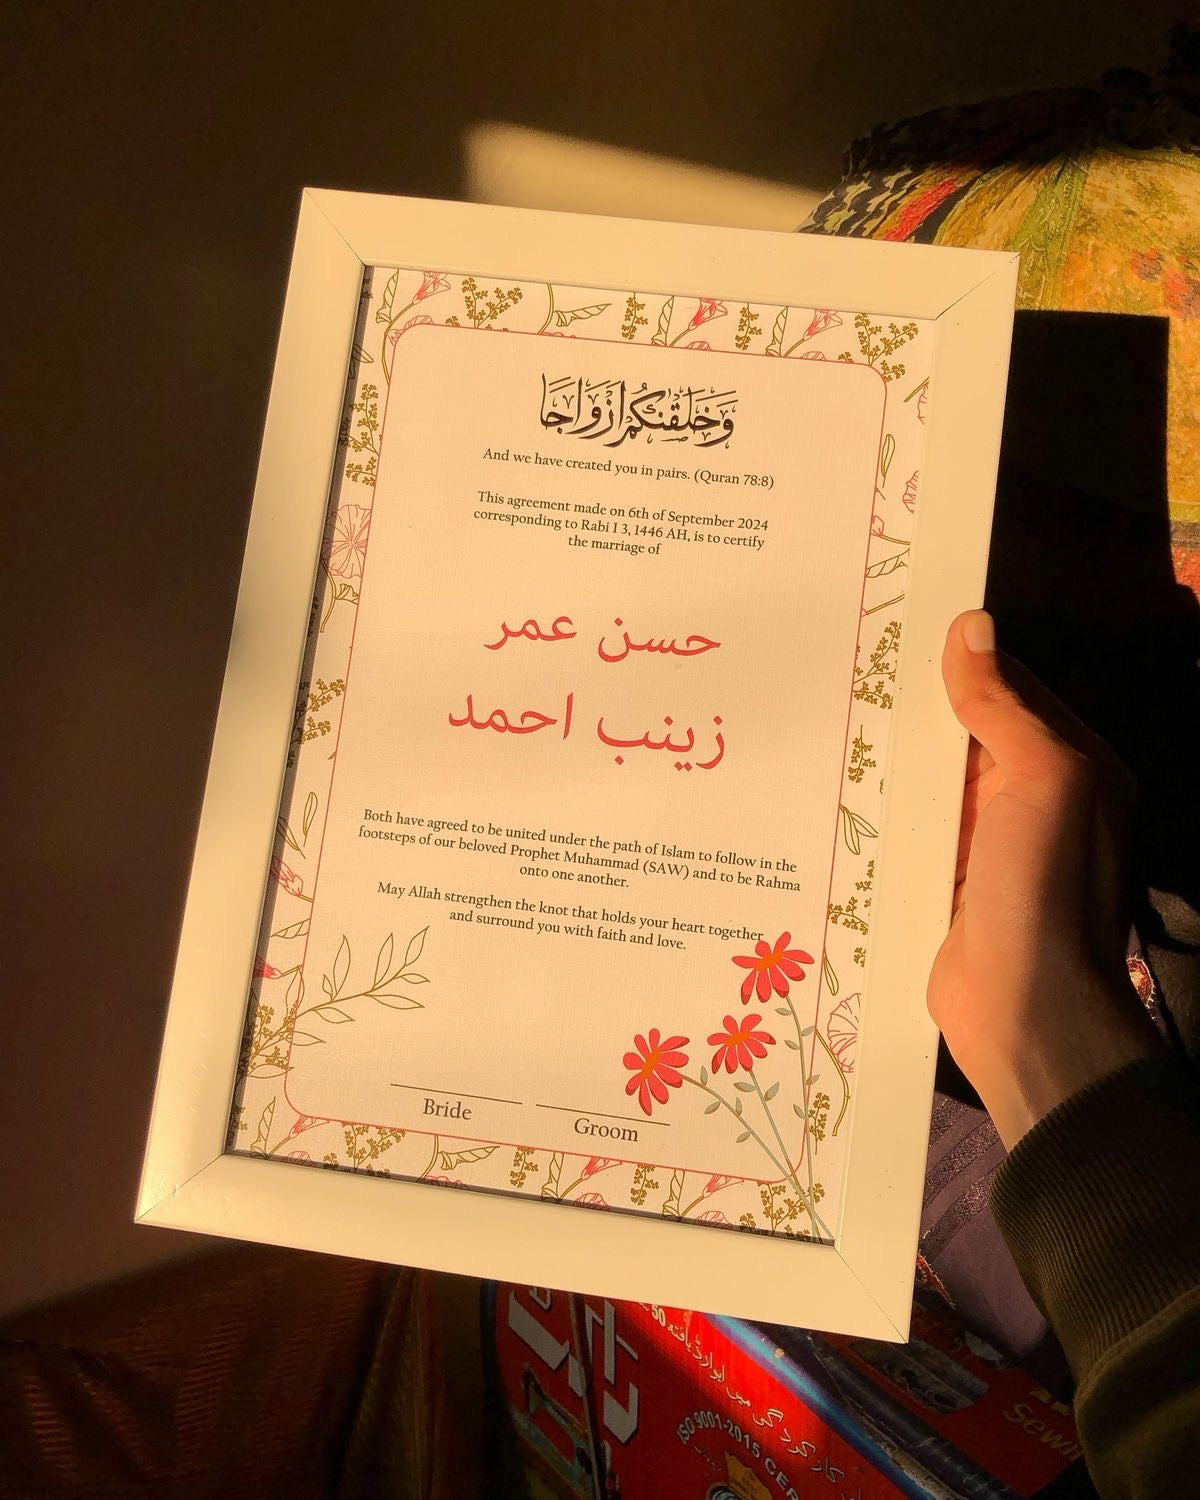 وَخَلَقْنَكُمْ أَزْوَاجًا
And we have created you in pairs. (Quran 78:8)
This agreement made on 6th of September 2024
corresponding to Rabi I 3, 1446 AH, is to certify
the marriage of
حسن عمر
زينب احمد
Both have agreed to be united under the path of Islam to follow in the
footsteps of our beloved Prophet Muhammad (SAW) and to be Rahma
onto one another.
May Allah strengthen the knot that holds your heart together
and surround you with faith and love.
Bride
Groom
50
کارکردگی میں ایوارڈ یافتہ
ISO 9001-2015